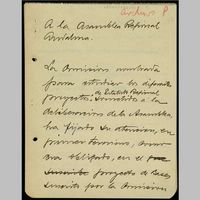 Archivo P
A la Asamblea Regional
Andaluza.
La Comisión nombrada
para estudiar los diferentes
proyectos de Estatuto Regional
sometidos a la
deliberación de la Asamblea,
ha fijado su atención, en
primer término, como
era obligado, en el
proyecto de Bases
suscrito por la Comisión